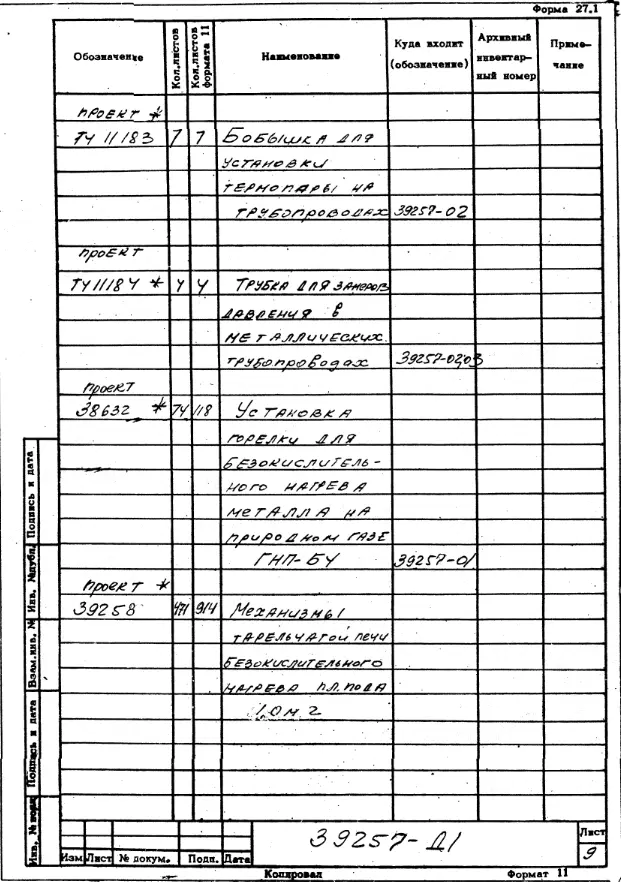 Форма 27.1
Обозначение Кол.листов Кол.листов формата 11 Наименование Куда входит (обозначение) Архивный инвентарный номер Примечание
проект *
ТУ 11183 7 7 Бобышка для
установки
термопары на
трубопроводах 39257-02
проект
ТУ11184 * 4 4 Трубка для замеров
давления в
металлических
трубопроводах 39257-02,03
проект
38632 * 74 118 Установка
горелки для
безокислитель-
ного нагрева
металла на
природном газе
ГНП-БУ 39257-01
проект *
39258 471 914 Механизмы
тарельчатой печи
безокислительного
нагрева пл. пода
1,0 м 2
Инв. № подл Подпись и дата Взам.инв. № Инв. №дубл. Подпись и дата
39257-Д1
Лист
9
Изм Лист № докум. Подп. Дата
Копировал Формат 11